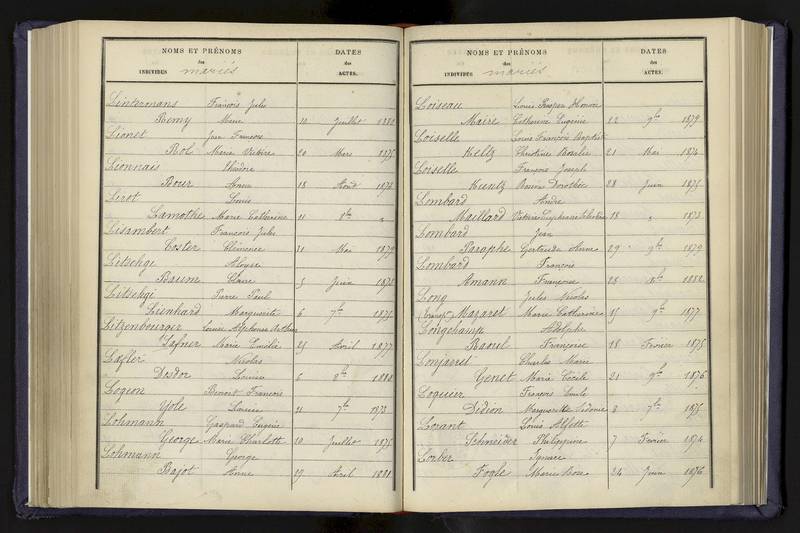 NOMS ET PRÉNOMS
des
INDIVIDUS mariés
DATES
des
ACTES.
Lintermans François Jules
Remy Marie 10 Juillet
Lionet Jean François
Rol Marie 20 Mars 1875
Lionnais Théodore
Bour Anne 18 Août 1874
Lirot Louis
Lamothe Marie Catherine 21 8bre
Lisambert François Jules
Toster Clémence 31 Mai 1879
Litschgi Aloyse
Baum Claire 5 Juin
Litschgi Pierre Paul
Lienhard Marguerite 6 7bre 1875
Litzenbourger Louis Alphonse Arthur
Safner Marie Emilie 25 Avril 1877
Lixfler Nicolas
Dosdor Louise 6 8bre 1880
Logeon Benoit François
Yole Louise 21 7bre 1873
Lohmann Gaspard Eugène
George Marie Charlotte 10 Juillet 1875
Lohmann George
Bajot Anne 29 Avril 1881
NOMS ET PRÉNOMS
des
INDIVIDUS mariés
DATES
des
ACTES.
Loiseau Louis Honoré
Maire Catherine Eugénie 22 9bre 1879
Loiselle Louis François Baptiste
Keltz Christine Rosalie 21 Mai 1874
Loiselle François Joseph
Kuntz Dorothée 28 Juin 1875
Lombard André
Maillard Victoire 18 " 1873
Lombard Jean
Paraphe Gertrude Anne 29 9bre 1879
Lombard François
Amann Françoise 25 1882
Long Jules Nicolas
Mazaret Marie Catherine 15 9bre 1877
Longchamp Adolphe
Raoul Françoise 18 Février 1875
Lonjarret Charles Marie
Genet Maria Cécile 21 9bre 1876
Loqueur François Emile
Didion Marguerite Sidonie 8 7bre 1875
Lorant Louis
Schneider Philippine 7 Février 1874
Lorber Ignace
Fogle Marie Rose 24 Juin 1876